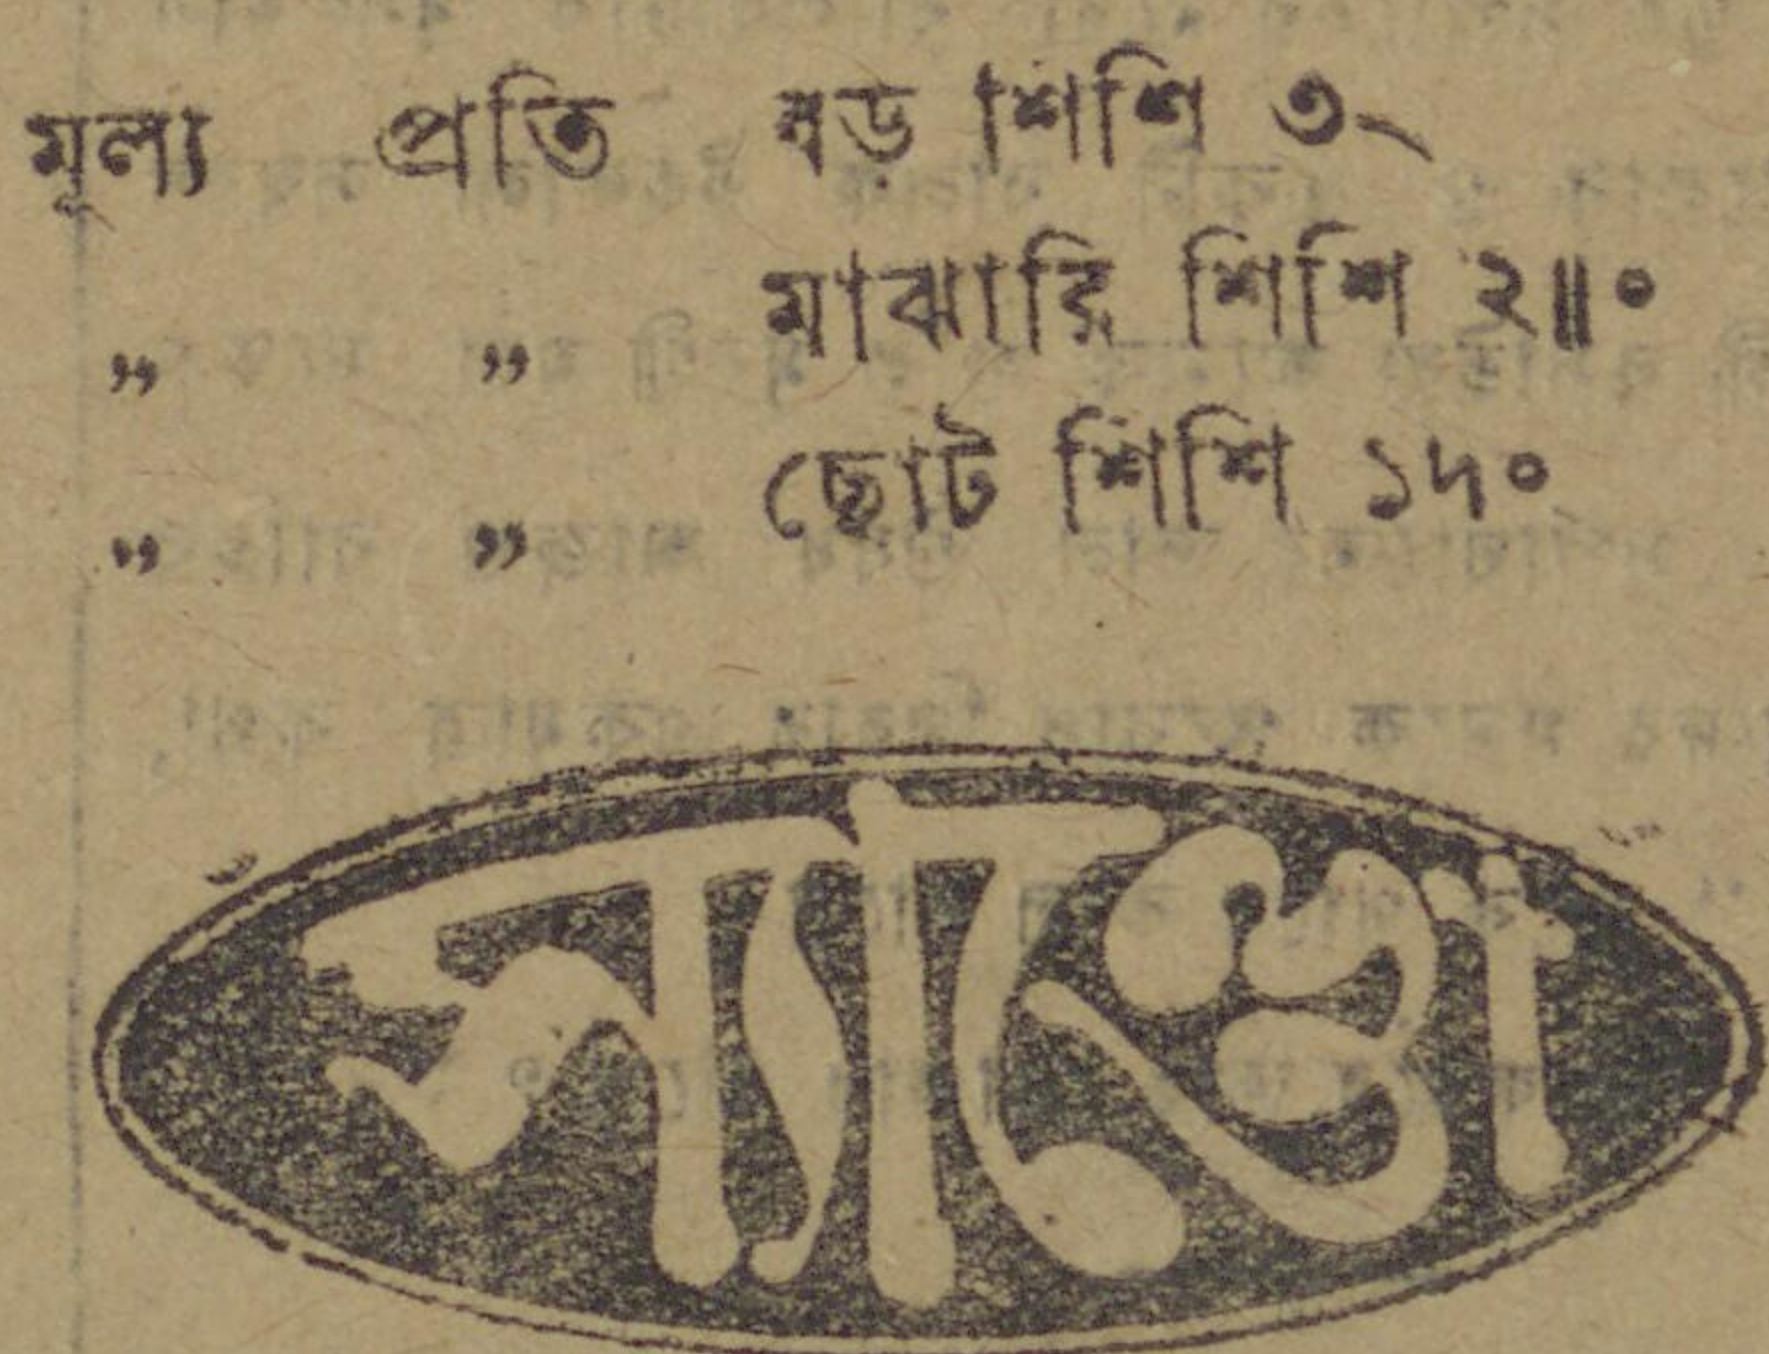 মূল্য প্রতি বড় শিশি ৩৲
„ „ মাঝারি শিশি ২॥৹
„ „ ছোট শিশি ১৸৹
স্যাণ্ডো